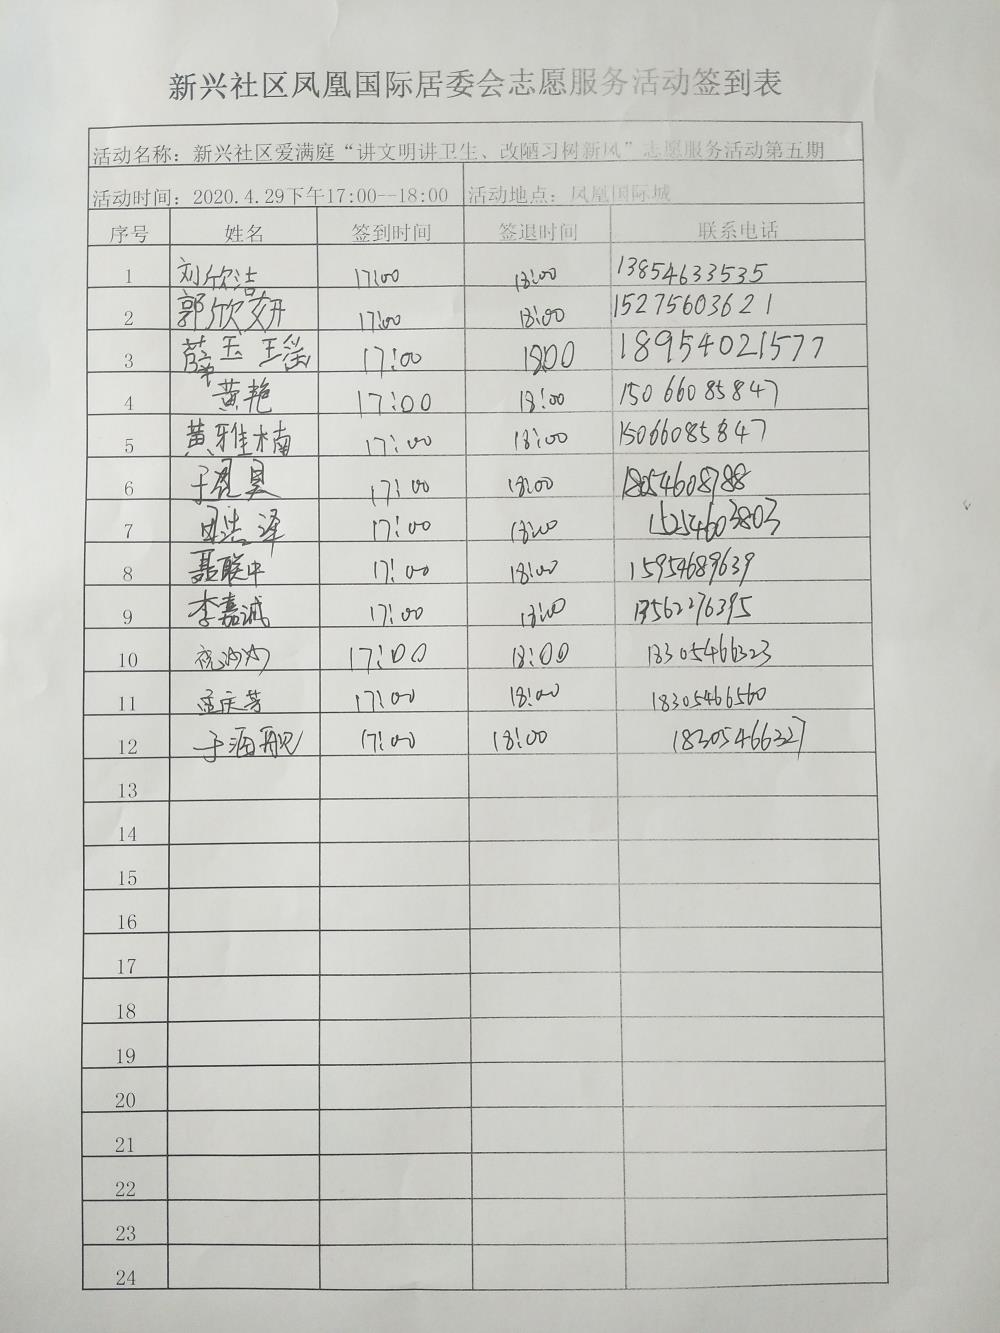 新兴社区凤凰国际居委会志愿服务活动签到表
活动名称：新兴社区爱满庭“讲文明讲卫生、改陋习树新风”志愿服务活动第五期
活动时间：2020.4.29下午17:00--18:00 活动地点：凤凰国际城
序号 姓名 签到时间 签退时间 联系电话
1 刘欣洁 17:00 18:00 13854633535
2 郭欣妍 17:00 18:00 15275603621
3 薛玉 王 17:00 18:00 18954021577
4 黄艳 17:00 18:00 15066085847
5 黄雅楠 17:00 18:00 15066085847
6 于晟昊 17:00 18:00 18054608788
7 田浩泽 17:00 18:00 15254603803
8 聂联中 17:00 18:00 15954689639
9 李嘉诚 17:00 18:00 13562276395
10 17:00 18:00 18305466323
11 孟庆芳 17:00 18:00 18305466560
12 于海 17:00 18:00 18305466327
13
14
15
16
17
18
19
20
21
22
23
24